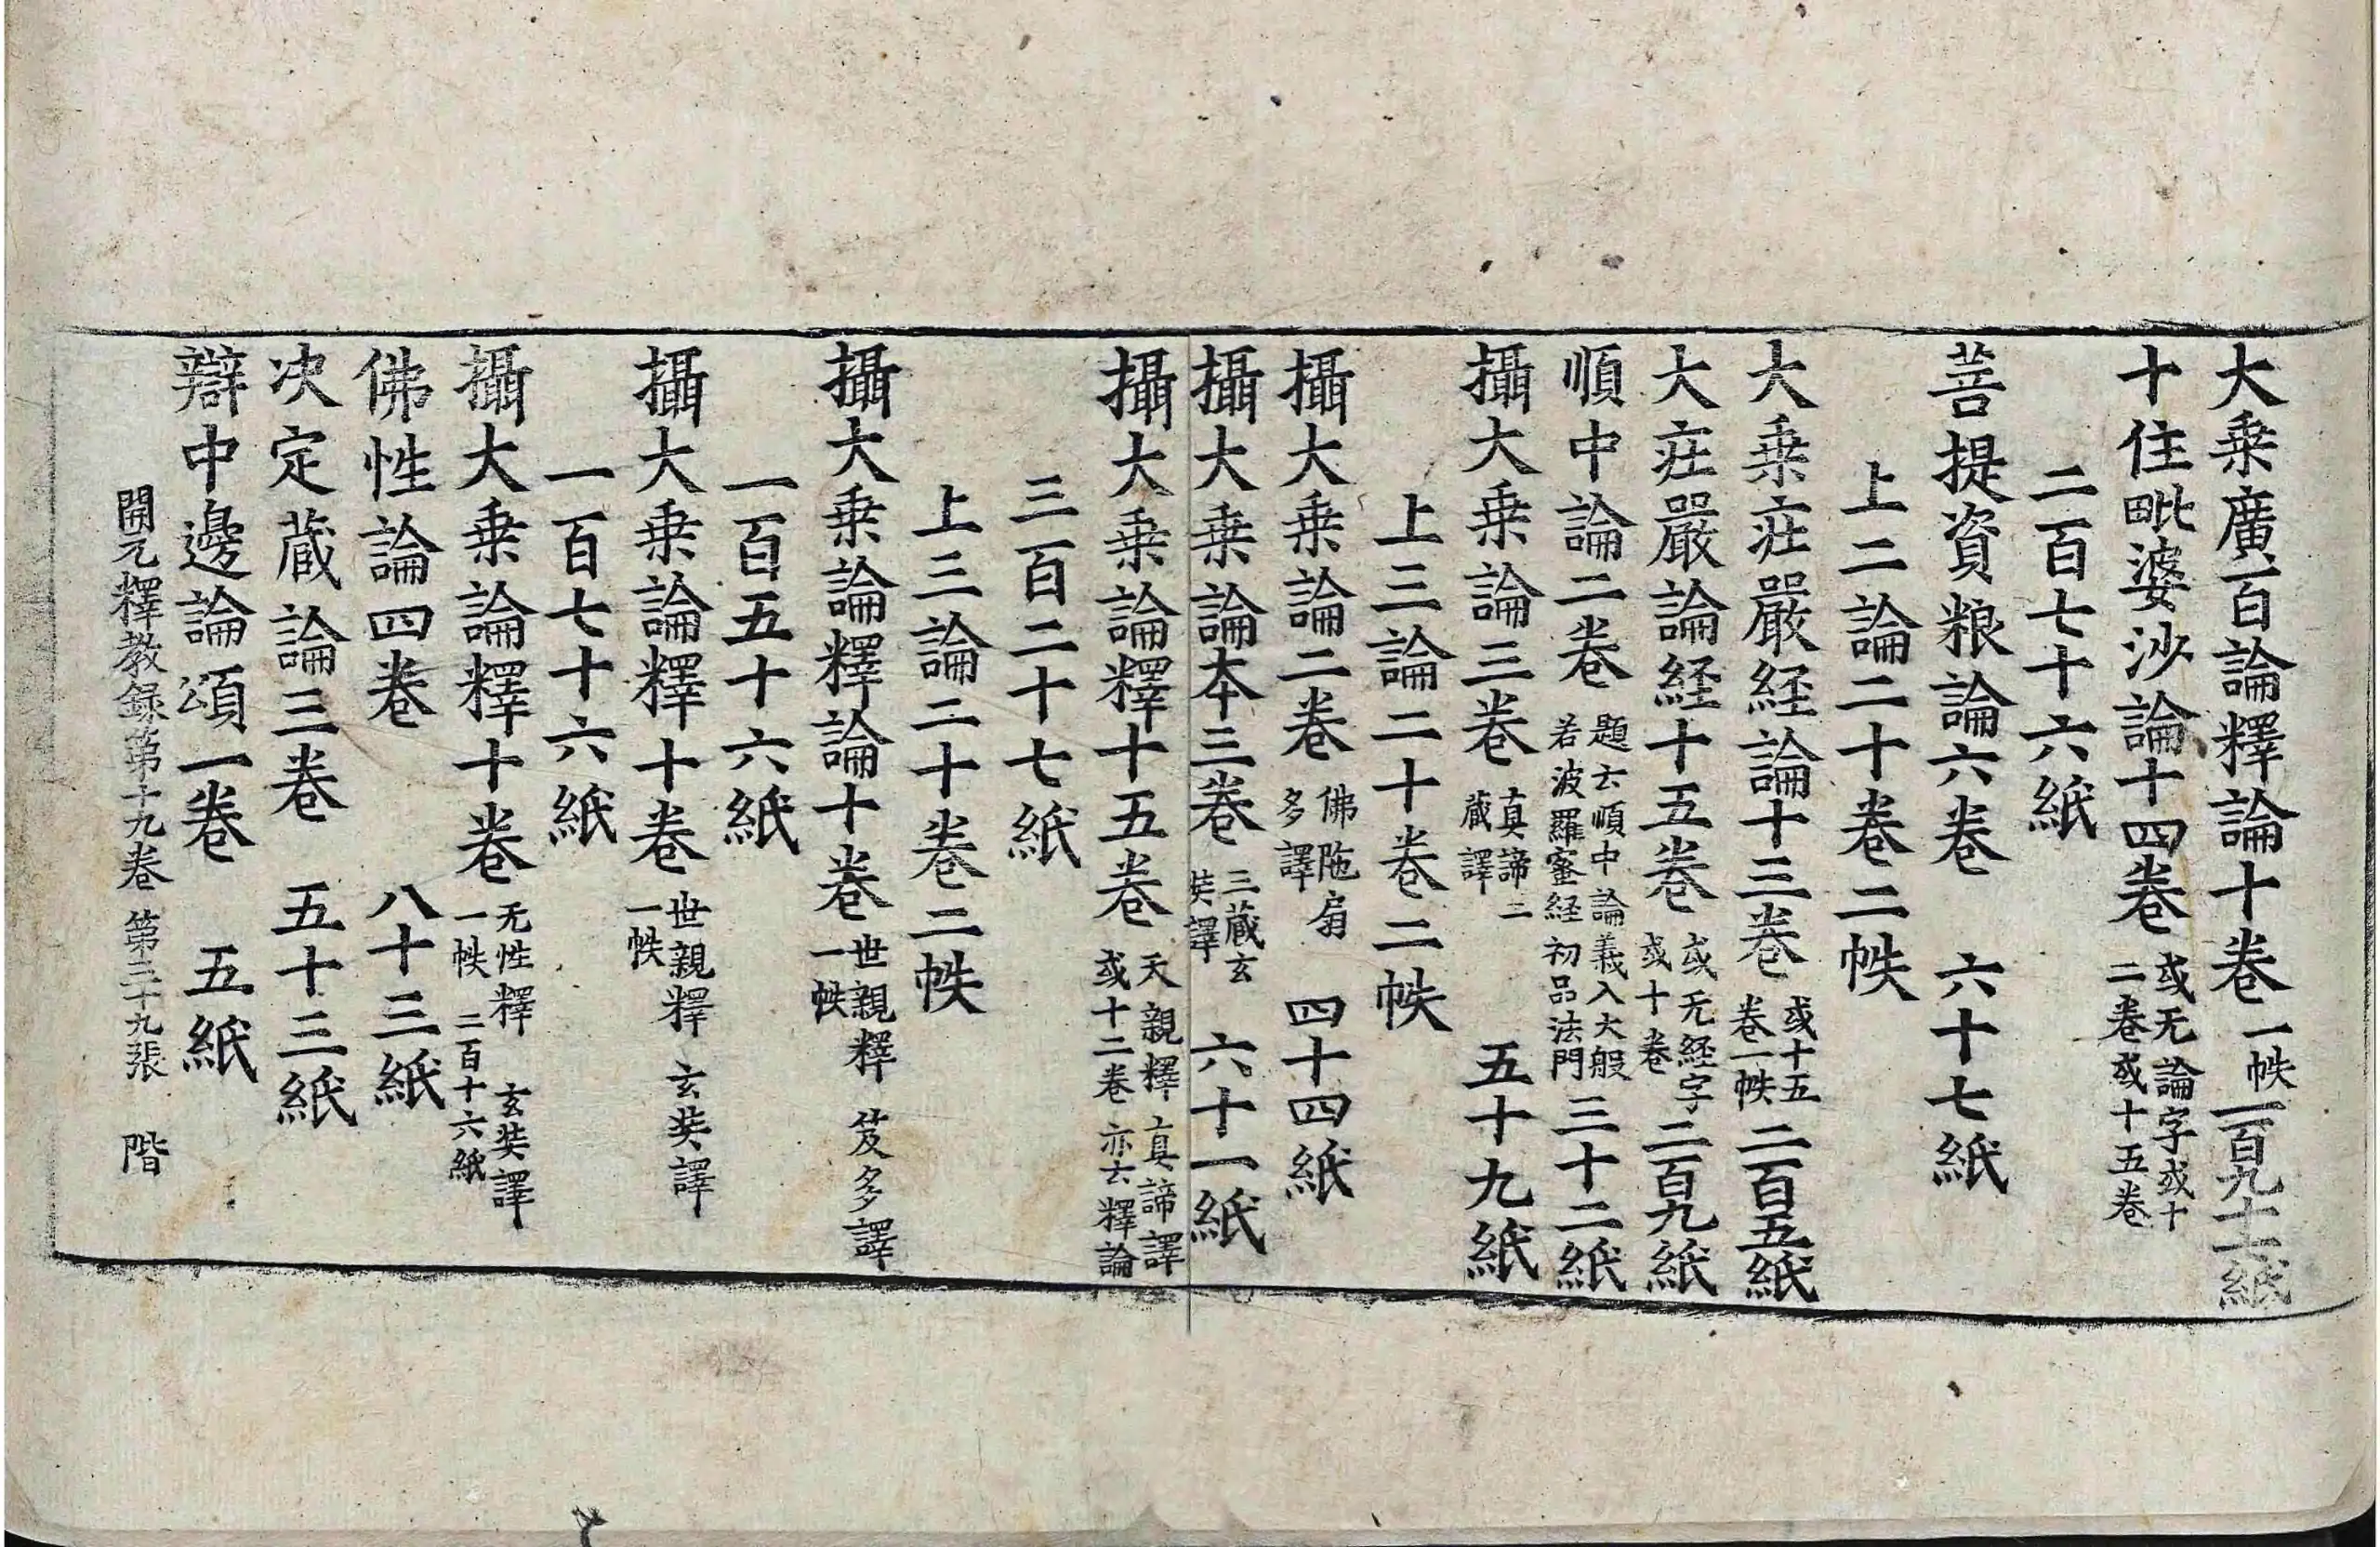 大乗廣百論釋論十卷 一帙 一百九十二紙
十住毗婆沙論十四卷 或无論字或十二卷或十五卷
二百七十六紙
菩提資粮論六卷 六十七紙
上二論二十卷二帙
大乗庄嚴経論十三卷 或十五卷一帙 二百五紙
大庄嚴論経十五卷 或无経字或十卷 二百九紙
順中論二卷 題云順中論義入大般若波羅蜜経初品法門 三十二紙
攝大乗論三卷 真諦三蔵譯 五十九紙
上三論二十卷二帙
攝大乗論二卷 佛陁扇多譯 四十四紙
攝大乗論本三卷 三蔵玄奘譯 六十一紙
攝大乗論釋十五卷 天親釋真諦譯或十二卷亦云釋論
三百二十七紙
上三論二十卷二帙
攝大乗論釋論十卷 世親釋 笈多譯 一帙
一百五十六紙
攝大乗論釋十卷 世親釋 玄奘譯 一帙
一百七十六紙
攝大乗論釋十卷 无性釋 玄奘譯 一帙 二百十六紙
佛性論四卷 八十三紙
决定蔵論三卷 五十三紙
辯中邊論頌一卷 五紙
開元釋教録第十九卷 第三十九張 階